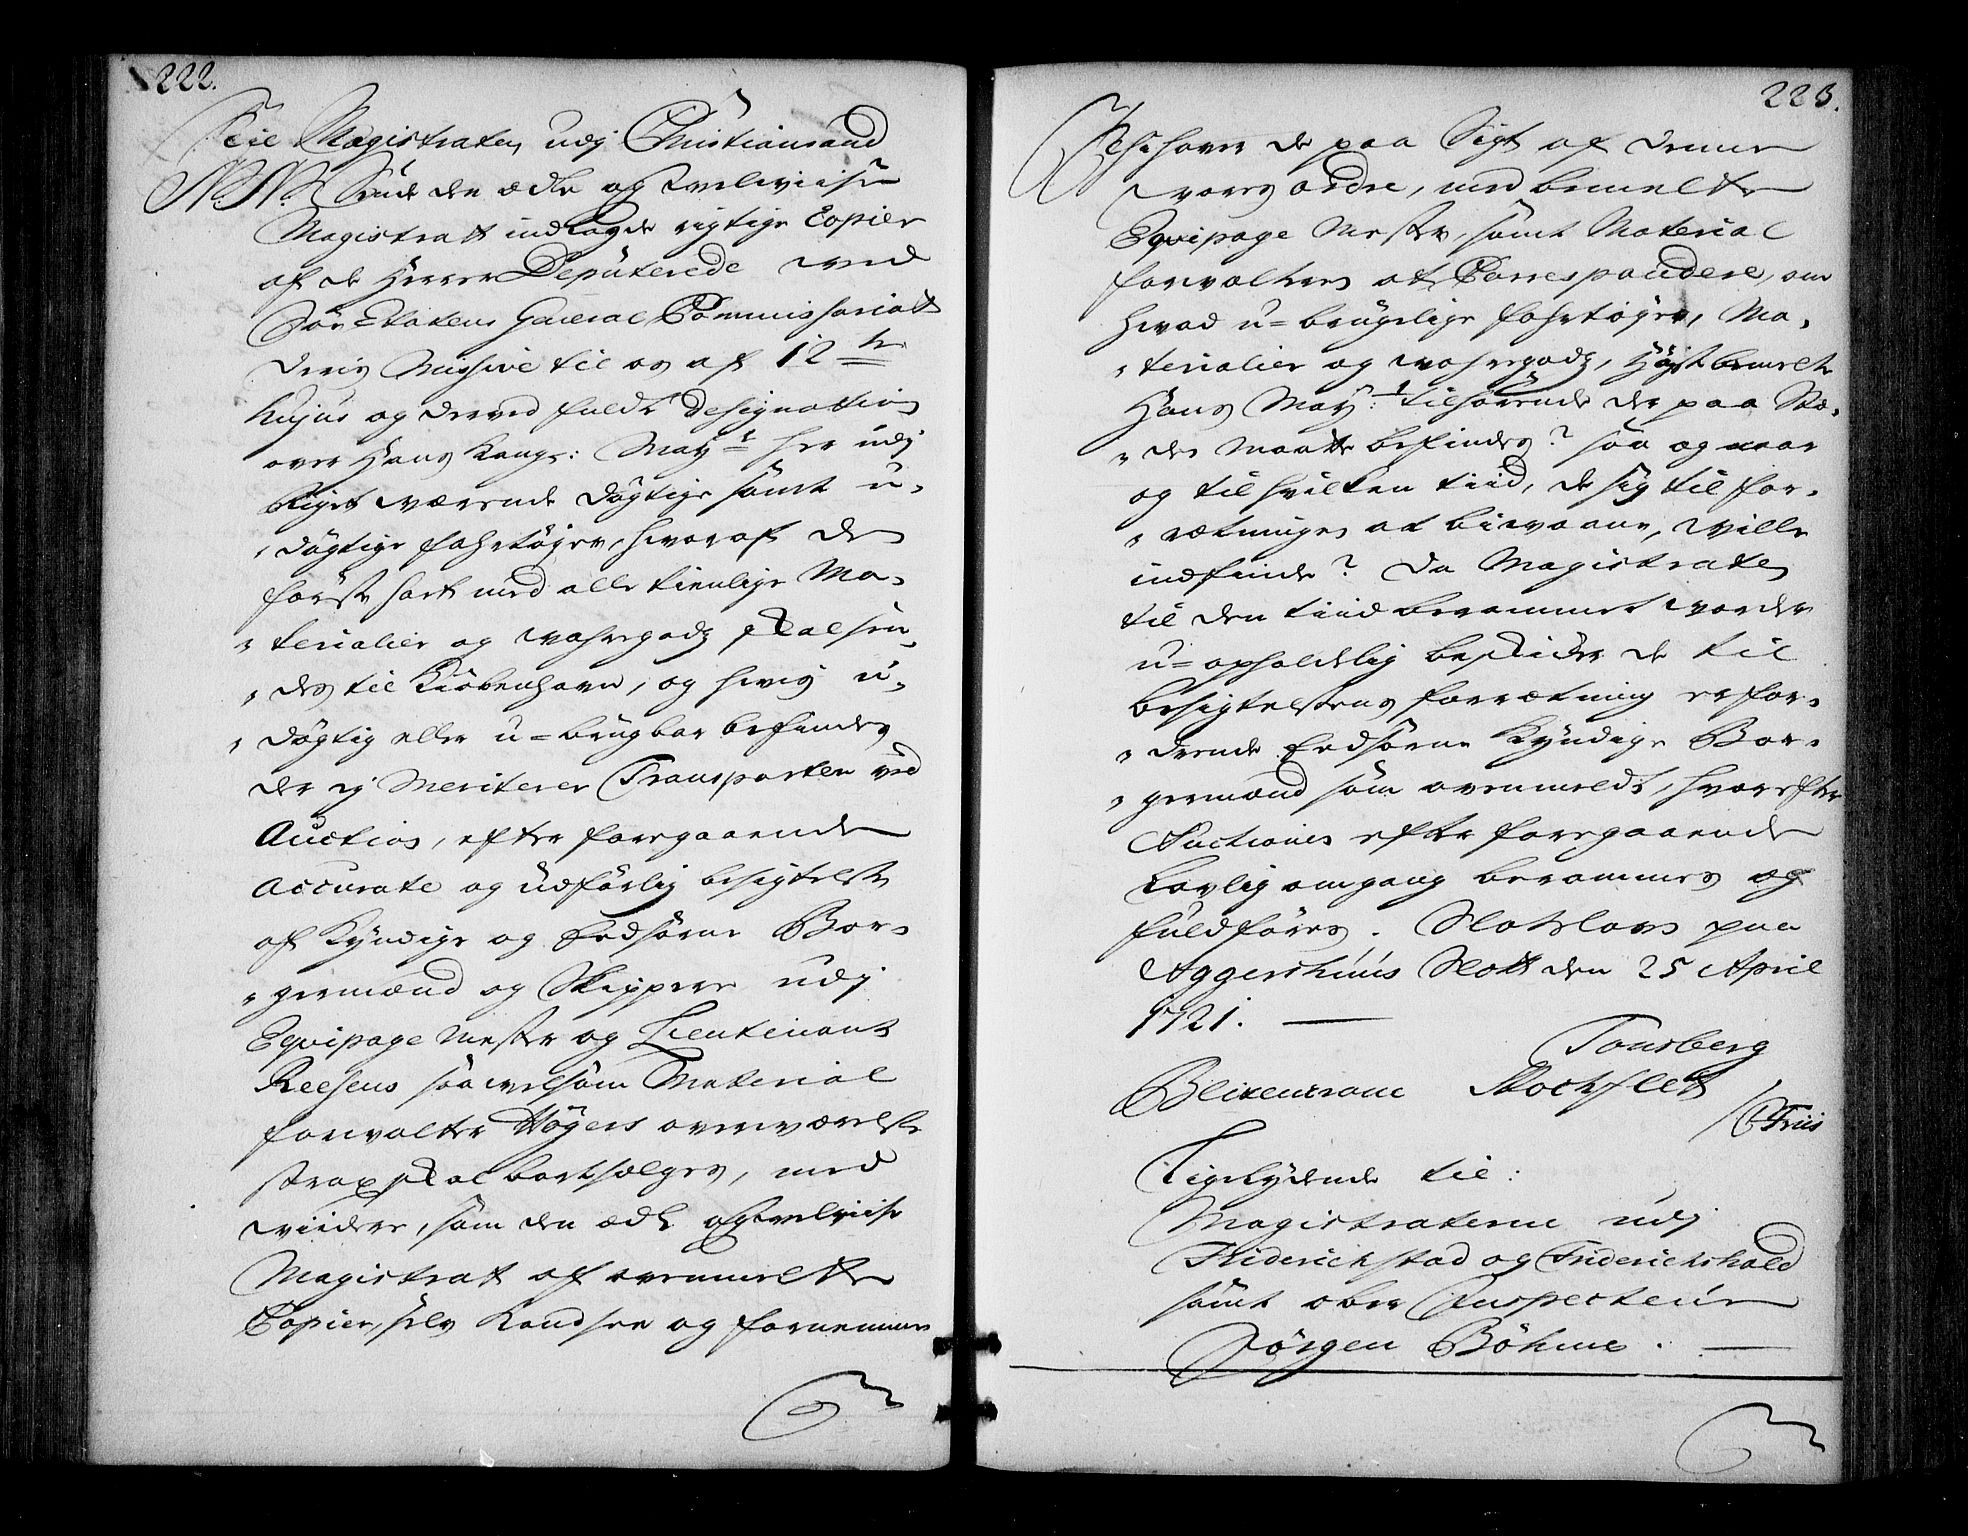 222.
Till Magistraten udj Christiansand
N. N. Sende den ædle og velviise
Magistratt indlagde rigtige Copier
af de Herrer Deputerede ved
Söe-Etatens General Commissariatt
deris Missive til os af 12te
hujus og derved fuldt Designation
over Hans Kongl: Mayts her udj
Riget værende dögtige samt u-
dögtige fahrtöjer, hvoraf den
förste sort med alle tienlige Ma-
terialier og vahregods skal sen-
des til Kiöbenhavn, og hvis u-
dögtig eller u-brugbar befindes
der ej Meriterer Transporten ved
Auction, efter foregaaende
accurate og udförlig besigtelse
af Kyndige og Eedsorne Bor-
germænd og Skippere udj
Equipage Mester og Lieutenant
Reesens saavelsom Material
forvalter Högers overværelse
strax skal bortsælges, med
viidere, som den ædle og velviise
Magistrat af ovenmelte
Copier, selv kand see og fornemme
223.
Behover de paa Sigt af denne
vores ordre, med bemelte
Equipage Mester, samt Material
forvalters at Correspondere, om
hvad u-brugelige fahrtöjer, Ma-
terialier og vahregods, Höystbemelte
Hans Mayt: tilhörende der paa Stæ-
det Maatte befindes? saa og naar
og til hvilken tiid, de sig til for-
retninges at bievaane, ville
indfinde? da Magistraten
til den tiid berammet vorder
u-opholdelig beskicker de til
besigtelsens forretning erfor-
drende Eedsorne Kyndige Bor-
germænd som ovenmeldt, hvorefter
Auctionen efter foregaaende
Lovlig omgang berammes og
fuldföres. Slotslov paa
Aggershuus Slott den 25 April
1721.
Tonsberg
Blixencrone Stockflet
/C Friis
Ligelydende til:
Magistraterne udj
Friderichstad og Friderichshald
samt ober Inspecteur
Jörgen Böhme.